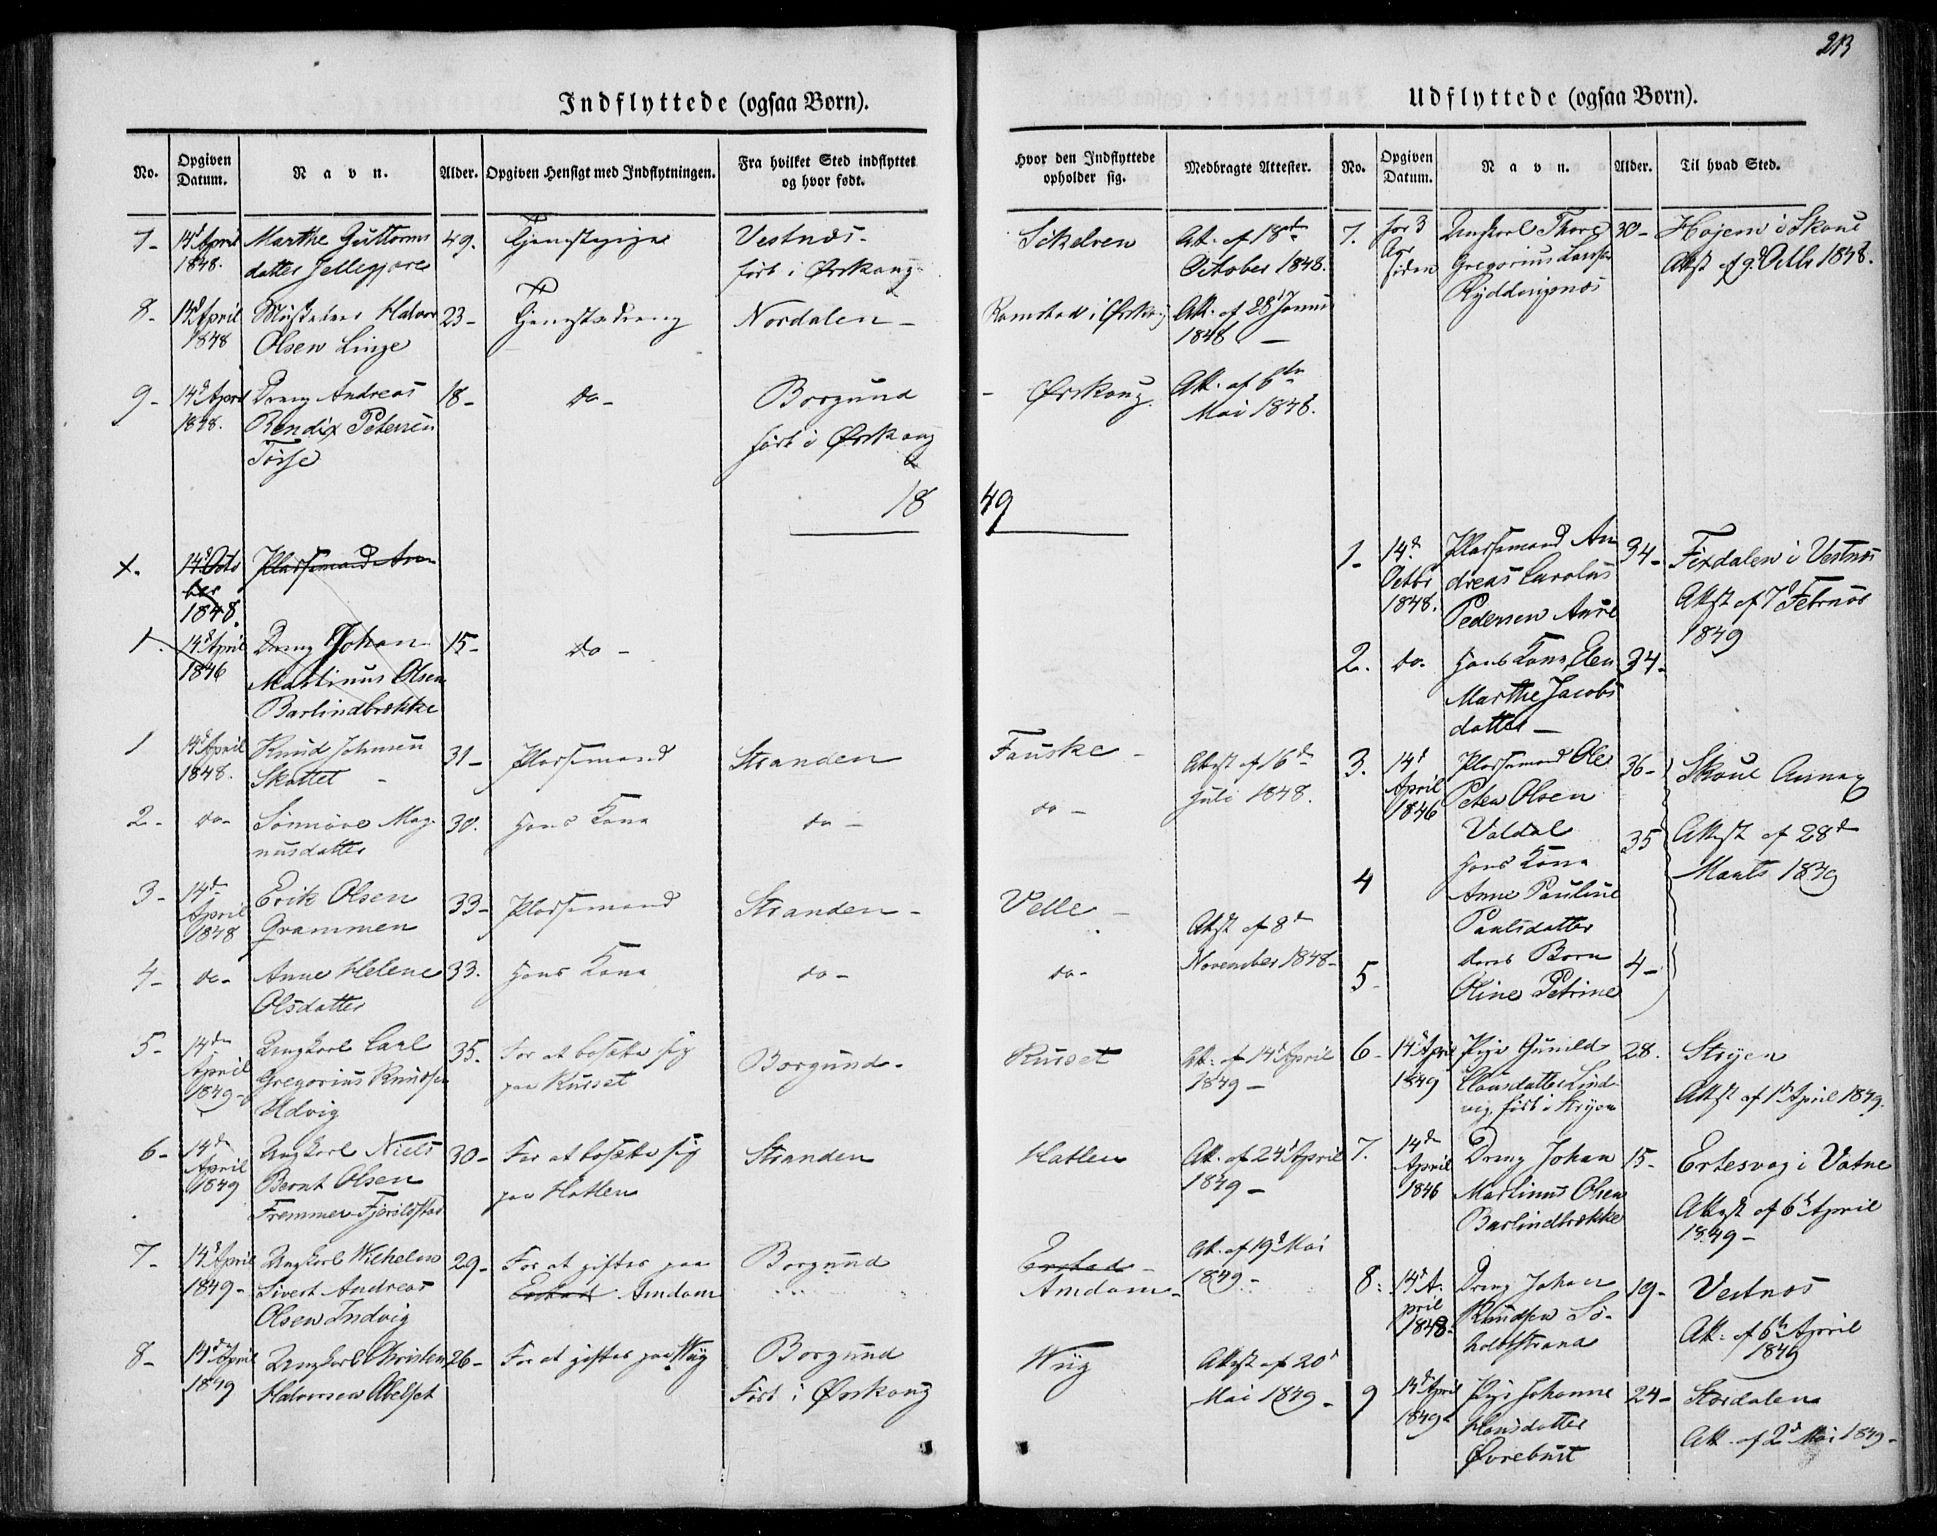 213
Indflyttede (ogsaa Børn).
No.
Opgiven Datum.
Navn.
Alder.
Opgiven Hensigt med Indflytningen.
Fra hvilket Sted indflyttet og hvor født.
Hvor den Indflyttede opholder sig.
Medbragte Attester.
7-
14d April
1848.
Marthe Guttorms
datter
49.
Tjenestepige
Vestnæs-
født i Ørskoug
Att. af 18de
October 1848.
8-
14d April
1848
Halvor
Olsen Linge
23-
Tjenestedreng
Nordalen-
Ramstad i Ørskoug
Att. af 28d Janus
1848-
9-
14d April
1848.
Dreng Andreas
Bendix Petersen
18-
do-
Borgund
født i Ørskoug
- Ørskoug.
Att. af 6te
Mai 1848.
18 49
14d Octo
ber
1848.
Pladsemand An
1.
14d April
1846
Dreng Johan
Martinus Olsen
Barlindbrække
15-
do-
1
14d April
1848.
Knud Johnsen
31-
Pladsemand
Stranden
Fauske-
Attest af 16de
Juli 1848.
2-
do-
Sønnøve Mag-
nusdatter
30.
Hans Kone
do-
do-
3-
14de
April
1848
Erik Olsen
Grammen
33-
Pladsemand
Stranden-
Velle-
Attest af 8de
November 1848-
4-
do-
Anne Helene
Olsdatter
33.
Hans Kone
do-
do-
5-
14de
April
1849-
Ungkarl Carl
Gregorius Knudsen
Udvig
35.
For at bosætte sig
paa Russet
Borgund-
Russet
Att. af 14d April
1849-
6-
14de
April
1849
Ungkarl Niels
Bernt Olsen
30-
For at bosætte sig
paa Hatlen
Stranden
Hatlen
Att. af 24d April
1849-
7-
14d April
1849-
Ungkarl Wilhelm
Sivert Andreas
Olsen Indvig
29-
For at giftes paa
Amdam
Borgund
Amdam-
Att. af 19d Mai
1849-
8-
14de April
1849
Ungkarl Christen
Halvorsen
26-
For at giftes paa Wiig
Borgund
Født i Ørskoug
Wiig
Attest af 20d
Mai 1849-
Udflyttede (ogsaa Børn).
No.
Opgiven Datum.
Navn.
Alder.
Til hvad Sted.
7.
for 3
Aar
siden
Ungkarl
Gregorius
30-
i Skoue
Attest af 9d Octbr 1848.
1-
14d
Octbr
1848.
Pladsemand An
dreas Carolus
Pedersen Aure
34-
Fixdalen i Vestnæs
Attest af 7d Februar
1849
2.
do-
Hans Kone Elen
Marthe Jacobs
datter-
34-
3.
14d
April
1846
Pladsemand Ole
Peter Olsen
Valdal
36-
Skoue Annex
4
Hans Kone
Anne Pauline
Paulsdatter
35
Attest af 28d
Marts 1849
5-
deres Barn
Oline Petrine
4-
6-
14d April
1849
Pige Gunild
født i Stryen
28.
Stryen
Attest af 1d April 1849.
7.
14de
April
1846
Dreng Johan
Martinus Olsen
Barlindbrække
15-
Ertesvog i Vatne
Attest af 6te April
1849-
8-
14d A-
pril
1848-
Dreng Johan
Knudsen Sø-
holtstrand
19-
Vestnæs
Att. af 6te April
1849
9
14d April
1849-
Pige Johanne
Hansdatter
Øvrebust
24-
Stordalen
Att. af 2d Mai 1849-